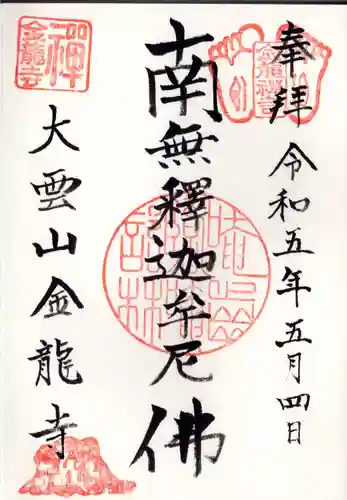 奉拝
令和五年五月四日
南無釋迦牟尼佛
大雲山金龍寺
禅
金龍寺